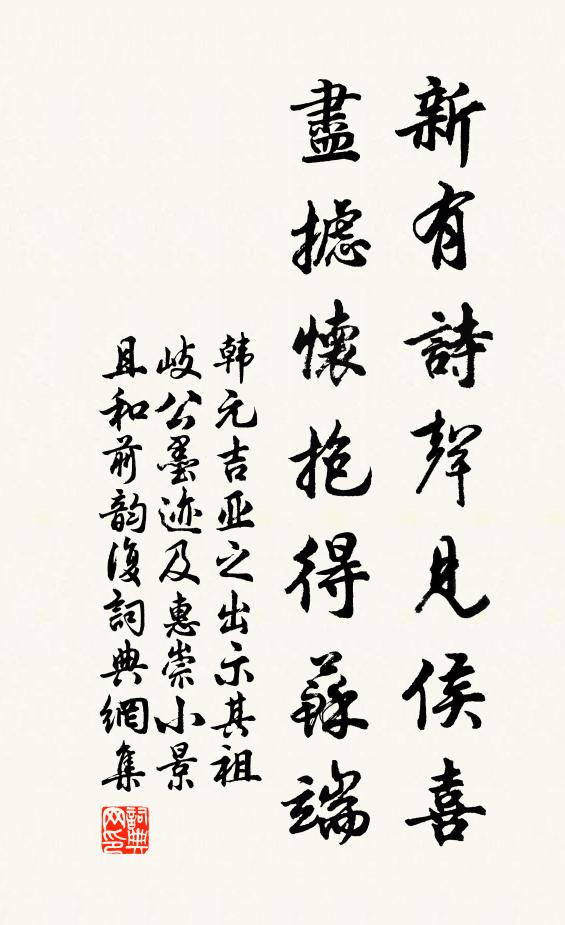 新有詩聲見侯喜
盡攄懷抱得蘇端
韩元吉亚之出示其祖
岐公墨迹及惠崇小景
且和前韵復詞典網集
詞典
网印